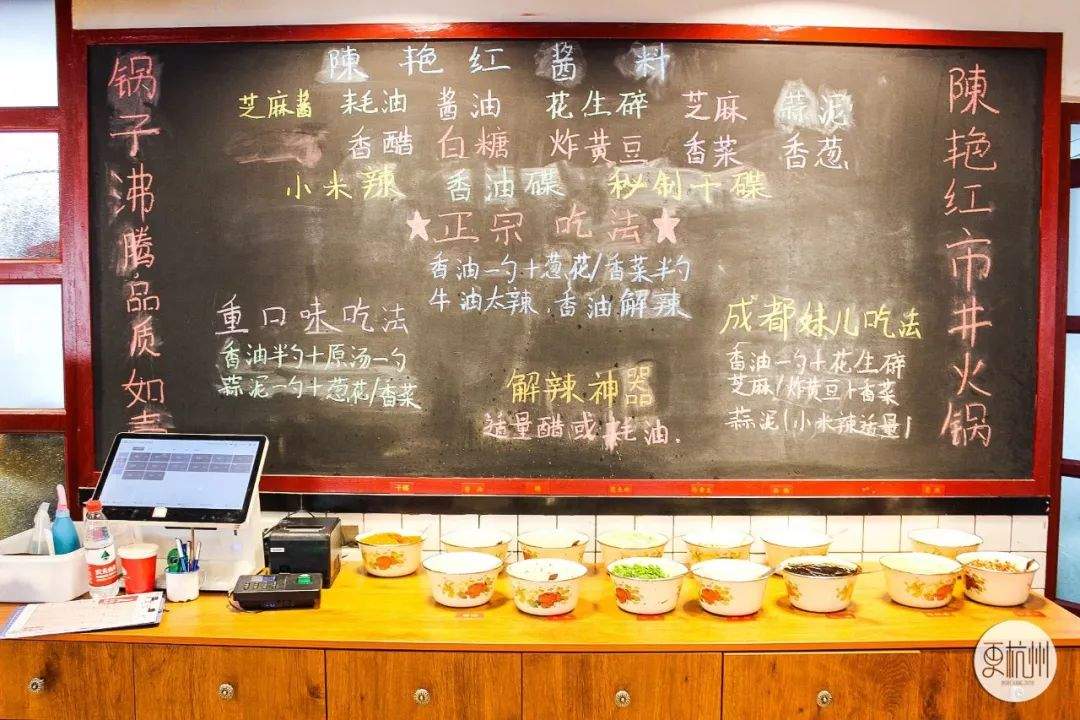 陳艳红酱料
芝麻酱 耗油 酱油 花生碎 芝麻 蒜泥
香醋 白糖 炸黄豆 香菜 香葱
小米辣 香油碟 秘制干碟
★正宗 吃法★
香油一勺+葱花/香菜半勺
牛油太辣 香油解辣
重口味吃法
香油半勺+原汤一勺
蒜泥一勺+葱花/香菜
解辣神器
适量醋或耗油.
成都妹儿吃法
香油一勺+花生碎
芝麻/炸黄豆+香菜
蒜泥(小米辣适量)
锅子沸腾品质如
陳艳红市井火锅
更杭州